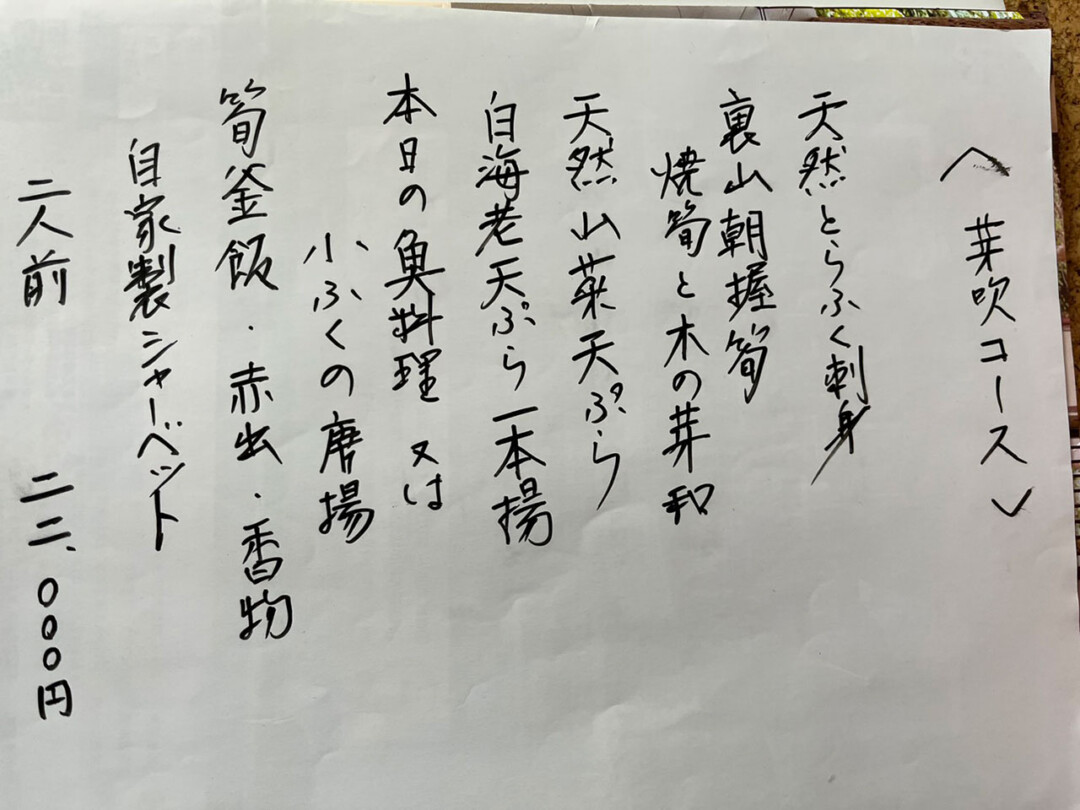 〈芽吹コース〉
天然とらふく刺身
裏山朝握筍
焼筍と木の芽和
天然山菜天ぷら
白海老天ぷら一本揚
本日の魚料理 又は
小ふぐの唐揚
筍釜飯・赤出・香物
自家製シャーベット
二人前 二二、〇〇〇円